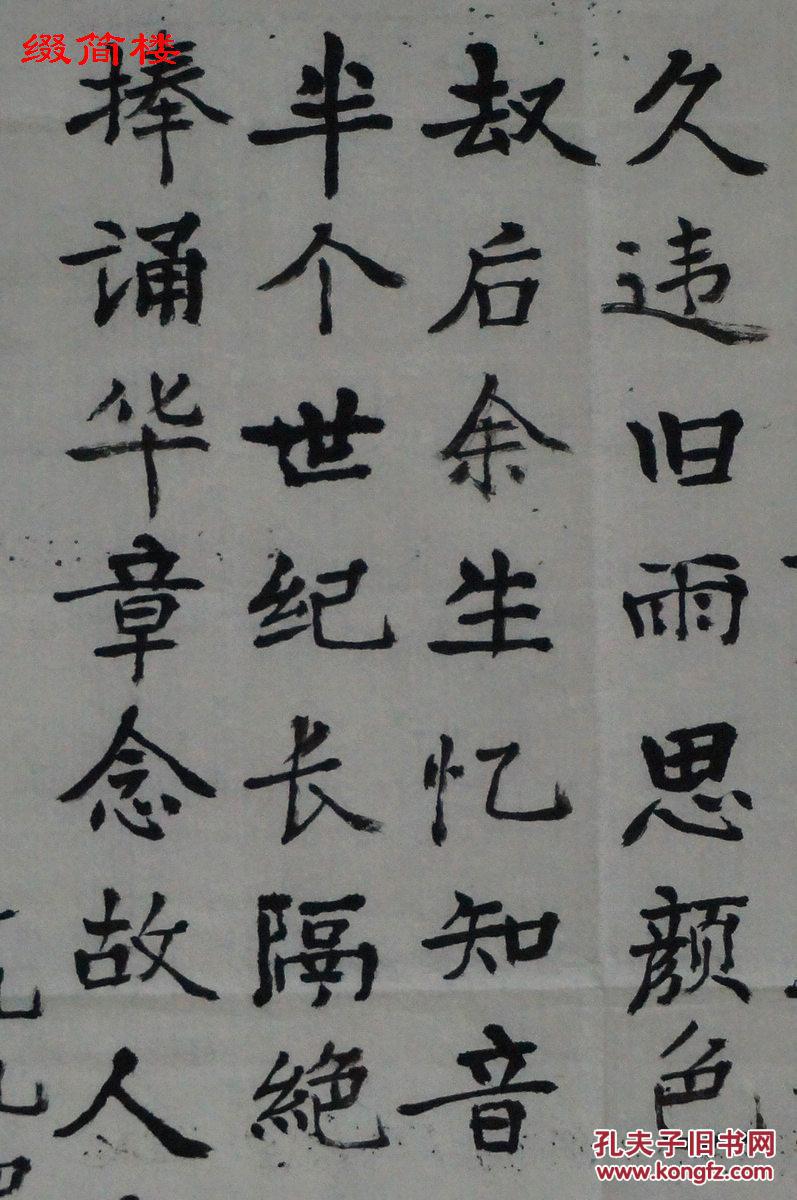 缀简楼
久违旧雨思颜色
劫后余生忆知音
半个世纪长隔絶
捧诵华章念故人
孔夫子旧书网
www.kongfz.com